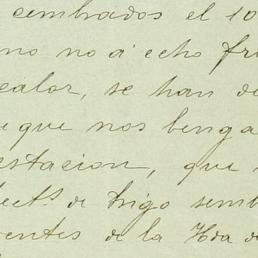 sembrados el 10
no no a echo fri
calor, se han de
que nos benga
estacion, que
hect.s de trigo semb
entes de la Hda de